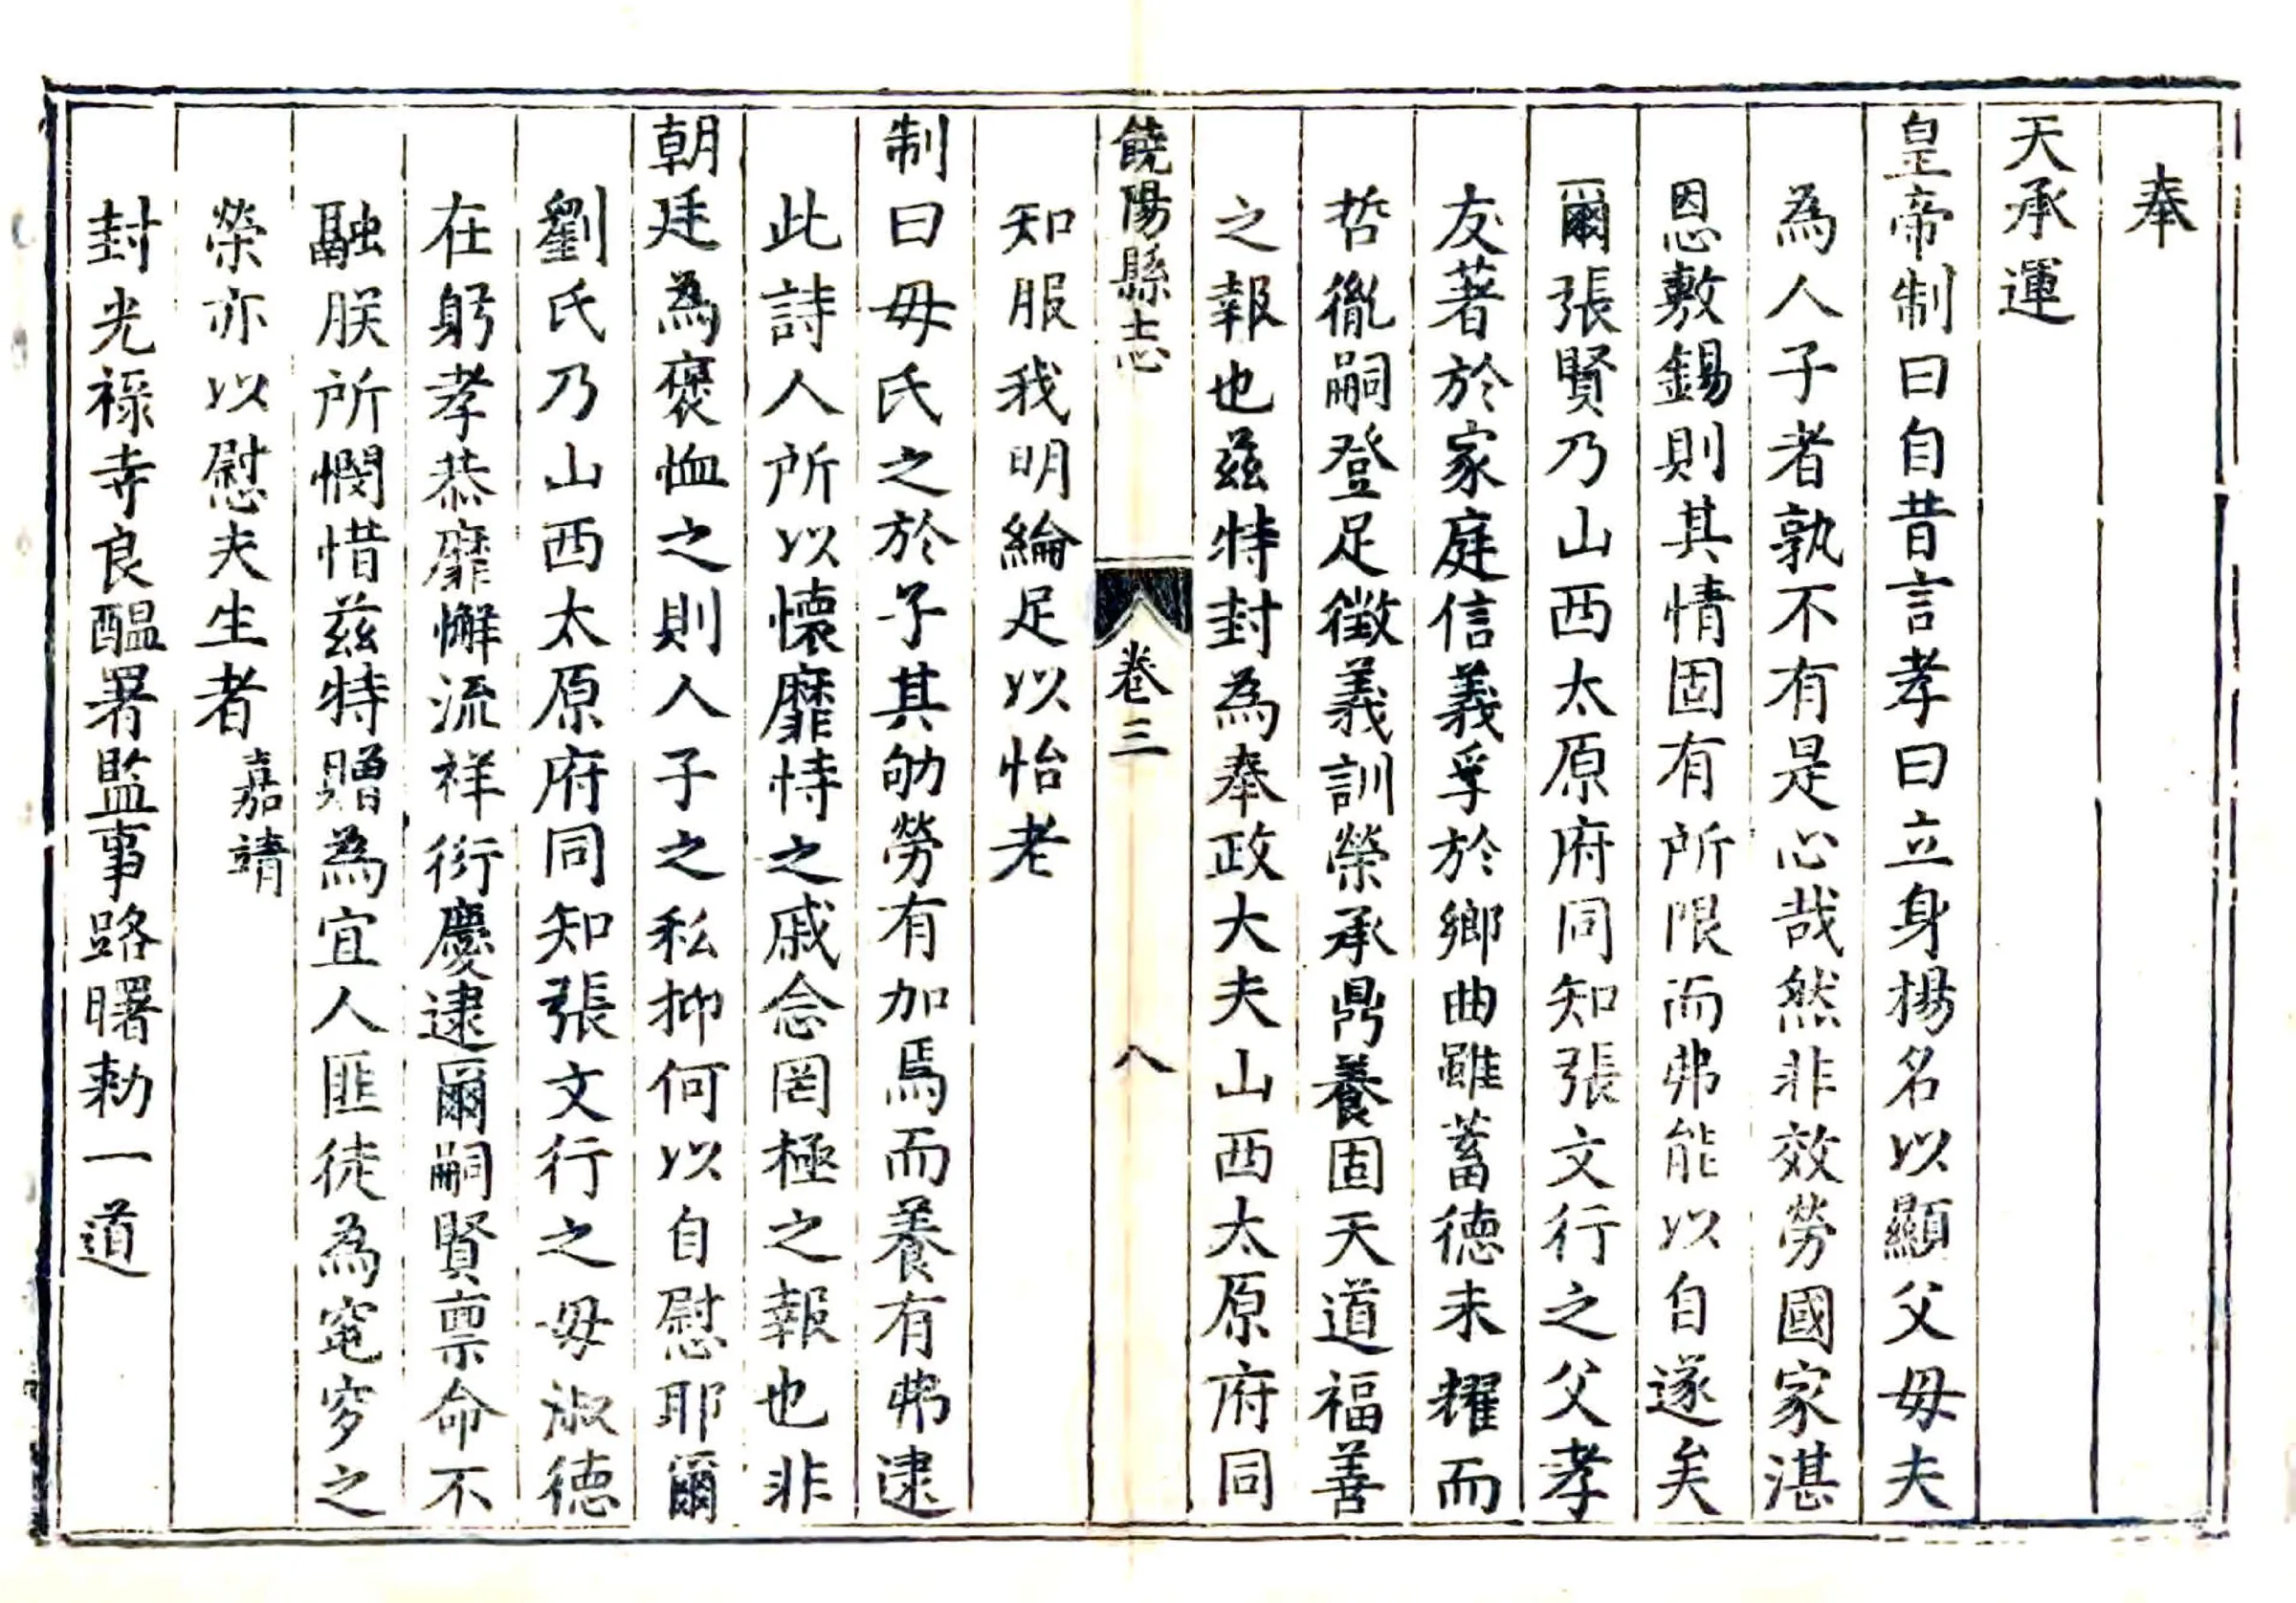 奉
天承運
皇帝制曰自昔言孝曰立身揚名以顯父毋夫
為人子者孰不有是心哉然非效勞國家湛
恩敷錫則其情固有所限而弗能以自遂矣
爾張賢乃山西太原府同知張文行之父孝
友著於家庭信義孚於鄉曲雖蓄德未耀而
哲胤嗣登足徵義訓榮承鼎養固天道福善
之報也兹特封為奉政大夫山西太原府同
知服我明綸足以怡老
饒陽縣志 卷三 八
制曰毋氏之於子其劬勞有加焉而養有弗逮
此詩人所以懷靡恃之戚念罔極之報也非
朝廷為褒恤之則人子之私抑何以自慰耶爾
劉氏乃山西太原府同知張文行之毋淑德
在躬孝恭靡懈流祥衍慶逮爾嗣賢禀命不
融朕所憫惜兹特贈為宜人匪徒為窀穸之
榮亦以慰夫生者 嘉靖
封光禄寺良醖署監事路曙勅一道